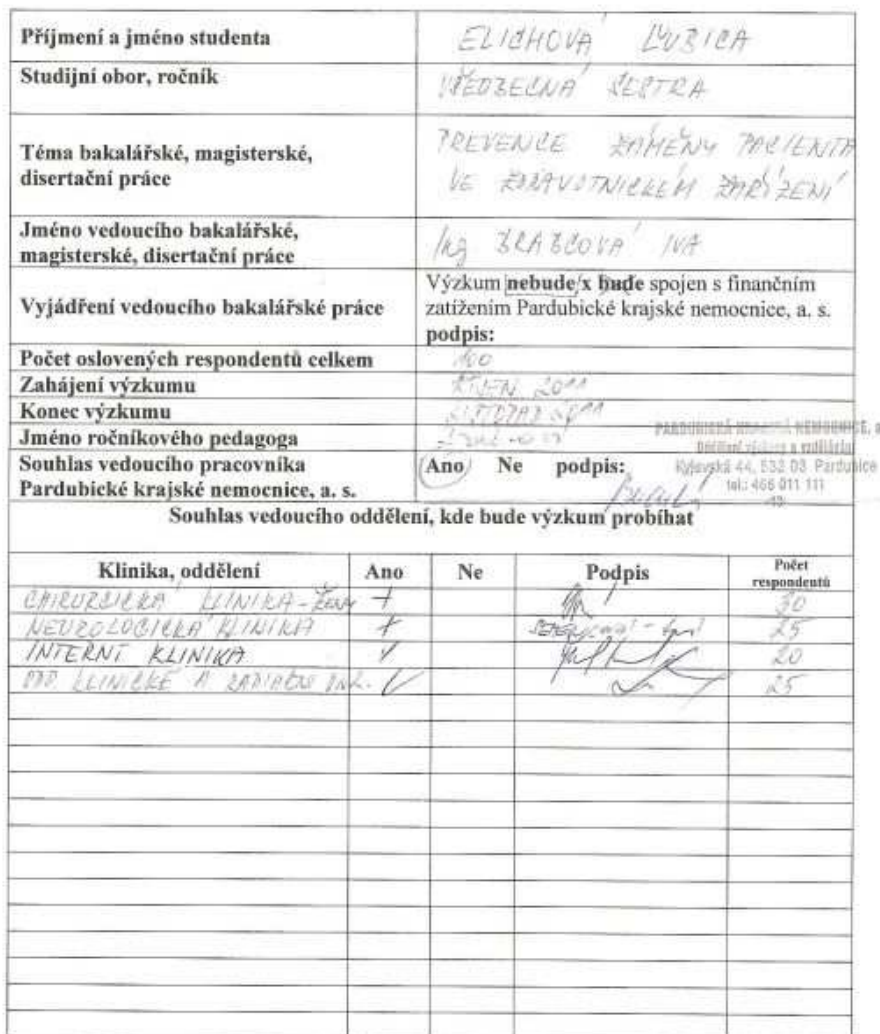 Příjmení a jméno studenta ELICHOVÁ ĽUBICA
Studijní obor, ročník VŠEOBECNÁ SESTRA
Téma bakalářské, magisterské,
disertační práce
PREVENCE ZÁMĚNY PACIENTA
VE ZDRAVOTNICKÉM ZAŘÍZENÍ
Jméno vedoucího bakalářské,
magisterské, disertační práce
Ing BRABCOVÁ IVA
Vyjádření vedoucího bakalářské práce
Výzkum nebude/x bude spojen s finančním
zatížením Pardubické krajské nemocnice, a. s.
podpis:
Počet oslovených respondentů celkem 100
Zahájení výzkumu ŘÍJEN 2011
Konec výzkumu LISTOPAD 2011
Jméno ročníkového pedagoga
Souhlas vedoucího pracovníka
Pardubické krajské nemocnice, a. s.
Ano Ne podpis:
PARDUBICKÁ KRAJSKÁ NEMOCNICE, a
Oddělení výzkumu a vzdělávání
Kyjevská 44, 532 03 Pardubice
tel.: 466 011 111
Souhlas vedoucího oddělení, kde bude výzkum probíhat
Klinika, oddělení Ano Ne Podpis Počet
respondentů
CHIRURGICKÁ KLINIKA-ŽENY + 30
NEUROLOGICKÁ KLINIKA + 25
INTERNÍ KLINIKA ✓ 20
ODD. KLINICKÉ A RADIAČNÍ ONK. ✓ 25